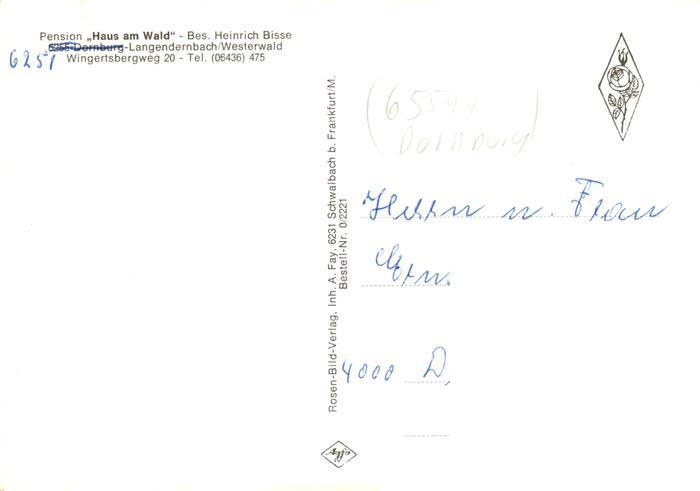 Pension „Haus am Wald" - Bes. Heinrich Bisse
6255 Dornburg-Langendernbach/Westerwald
6251
Wingertsbergweg 20 - Tel. (06436) 475
Rosen-Bild-Verlag, Inh. A. Fay, 6231 Schwalbach b. Frankfurt/M.
Bestell-Nr. 0/2221
Dornburg)
Herrn u. Frau
4000 D.
Agfa